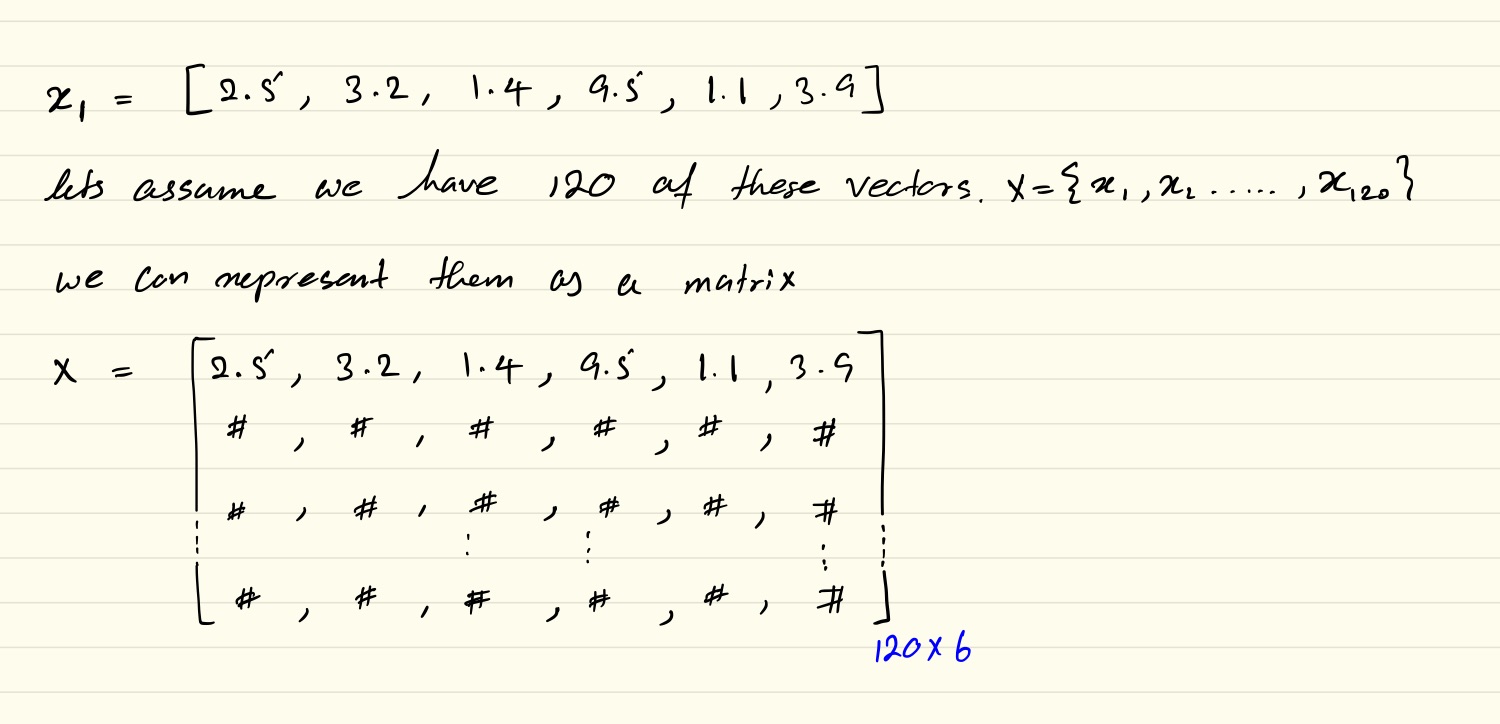 x₁ = [2.5, 3.2, 1.4, 9.5, 1.1, 3.9]
lets assume we have 120 of these vectors. X={x₁, x₂ ....., x₁₂₀}
we can represent them as a matrix
X = [2.5, 3.2, 1.4, 9.5, 1.1, 3.9
#, #, #, #, #, #
#, #, #, #, #, #
⋮ ⋮ ⋮
#, #, #, #, #, #]
120 x 6